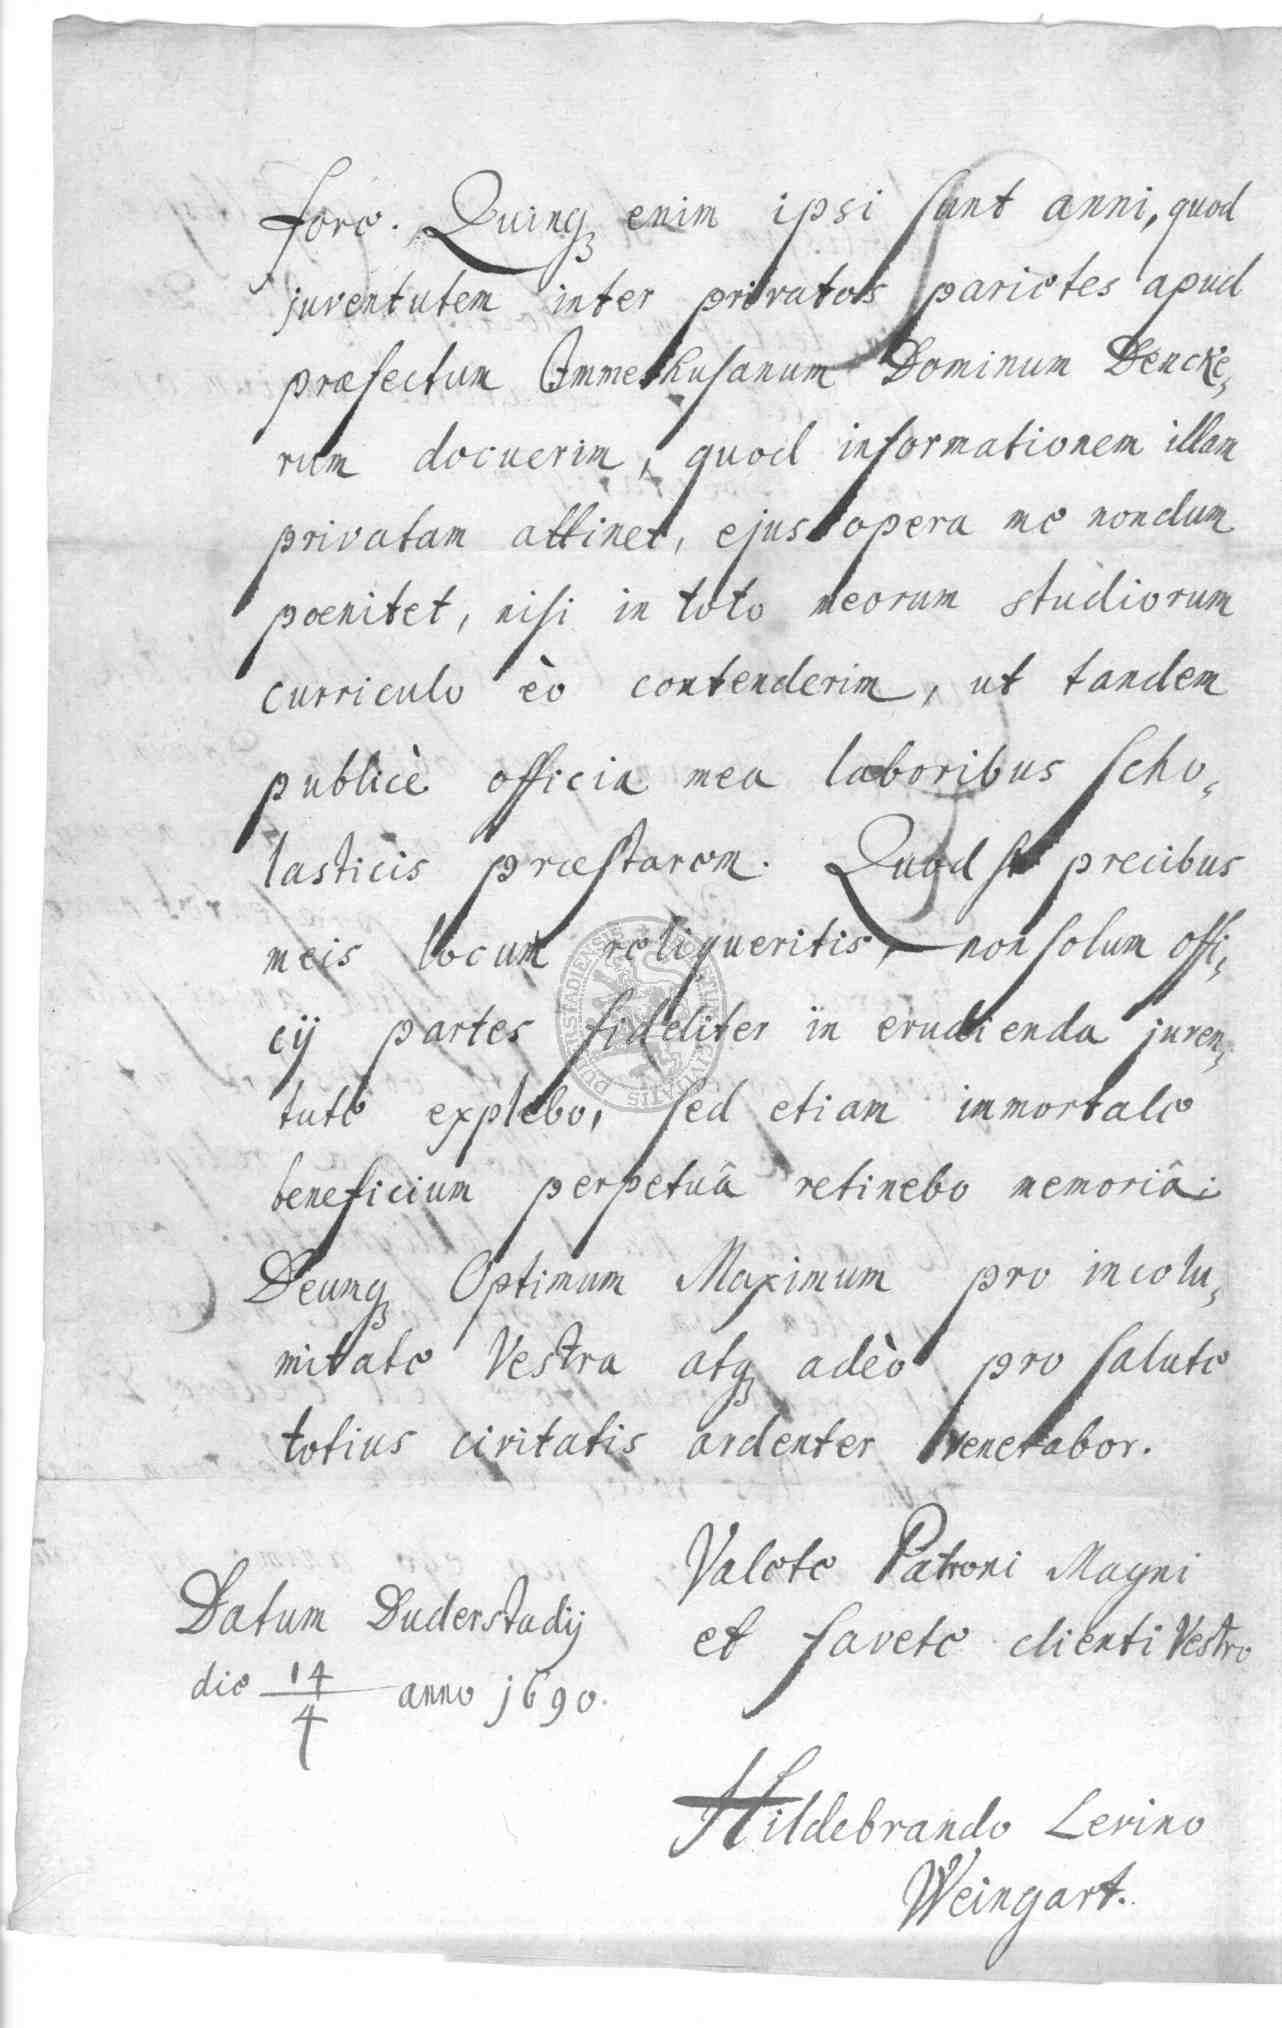 fore. Quinq₃ enim ipsi sunt anni, quod
juventutem inter privatos parietes apud
præfectum Immeshusanum Dominum Dencke,
rum docuerim, quod informationem illam
privatam attinet, ejus opera me nondum
poenitet, nisi in toto meorum studiorum
curriculo eò contenderim, ut tandem
publicè officia mea laboribus scho,
lasticis præstarem. Quod si precibus
meis locum reliqueritis, non solum offi,
cij partes fideliter in erudienda juven,
tute explebo, sed etiam immortale
beneficium perpetuâ retinebo memoriâ;
Deumq₃ Optimum Maximum pro incolu,
mitate Vestra atq₃ adeò pro salute
totius civitatis ardenter venerabor.
Valete Patroni Magni
et favete clienti Vestro
Datum Duderstadij
die 14/4 anno 1690.
Hildebrando Levino
Weingart.